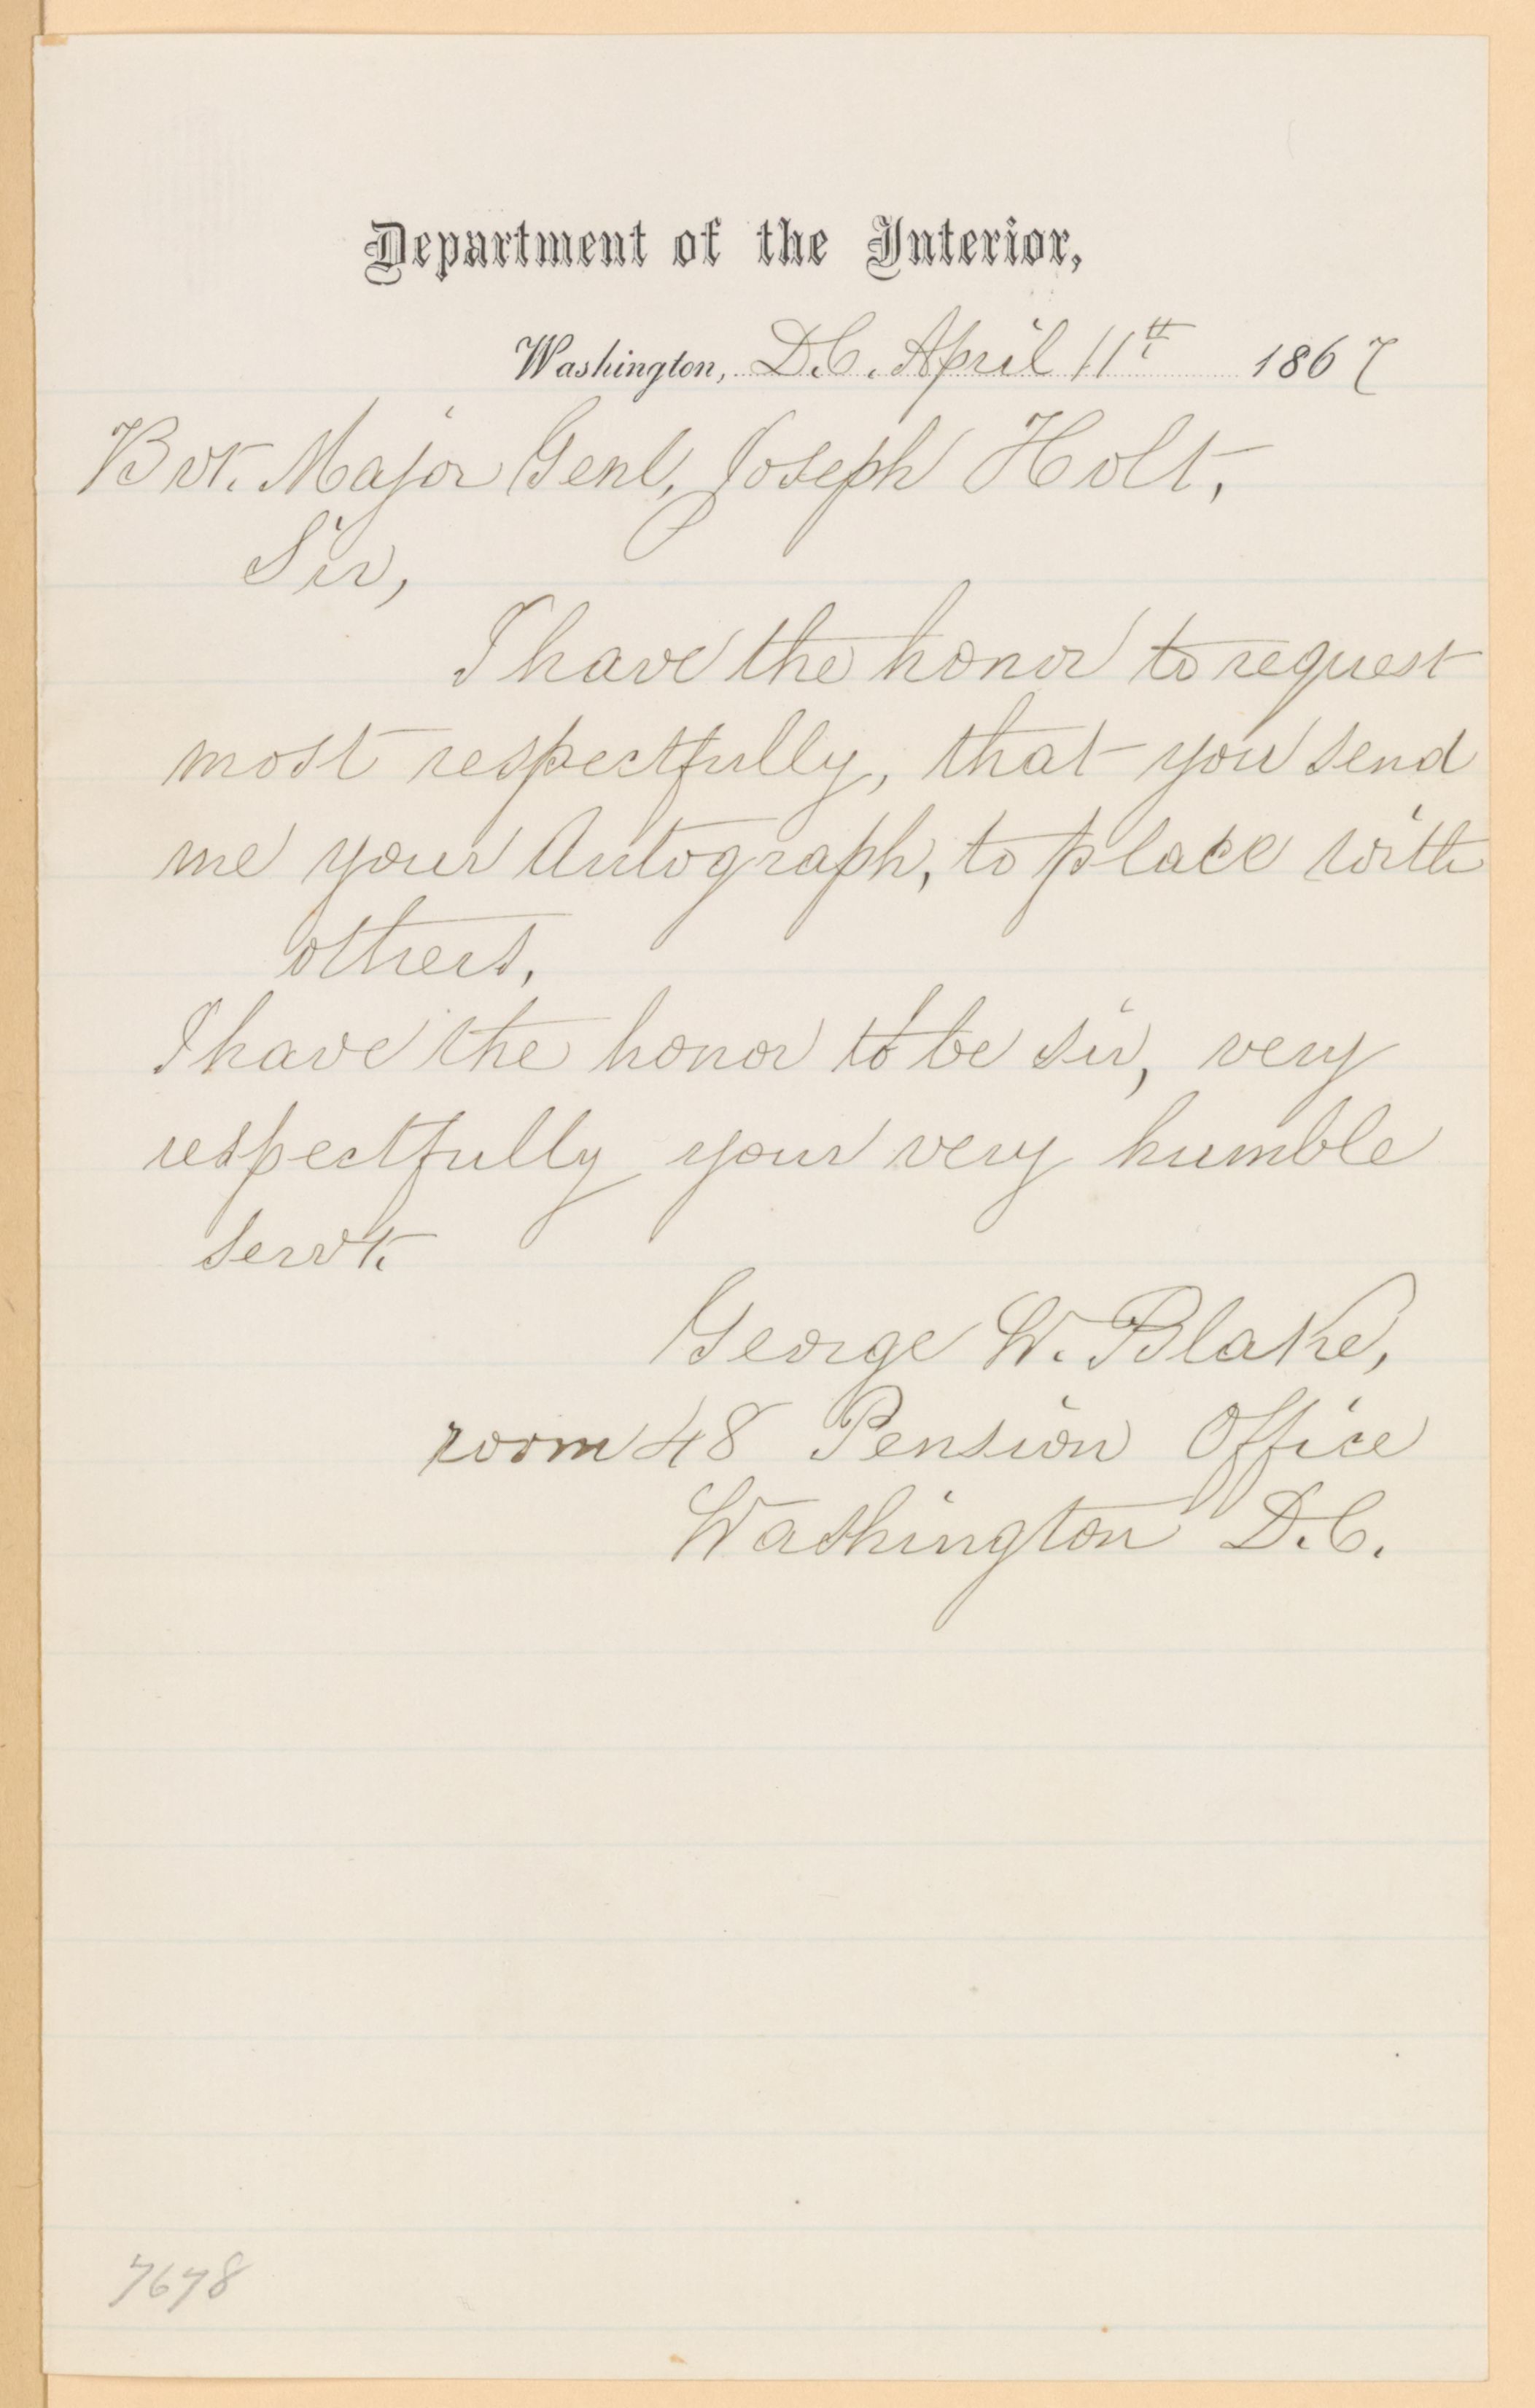 Department of the Interior,
Washington, D.C. April 11th 1867
Bvt. Major Genl, Joseph Holt,
Sir,
I have the honor to request
most respectfully, that you send
me your Autograph, to place with
others.
I have the honor to be sir, very
respectfully your very humble
servt.
George W. Blake,
room 48 Pension Office
Washington D.C.
7678